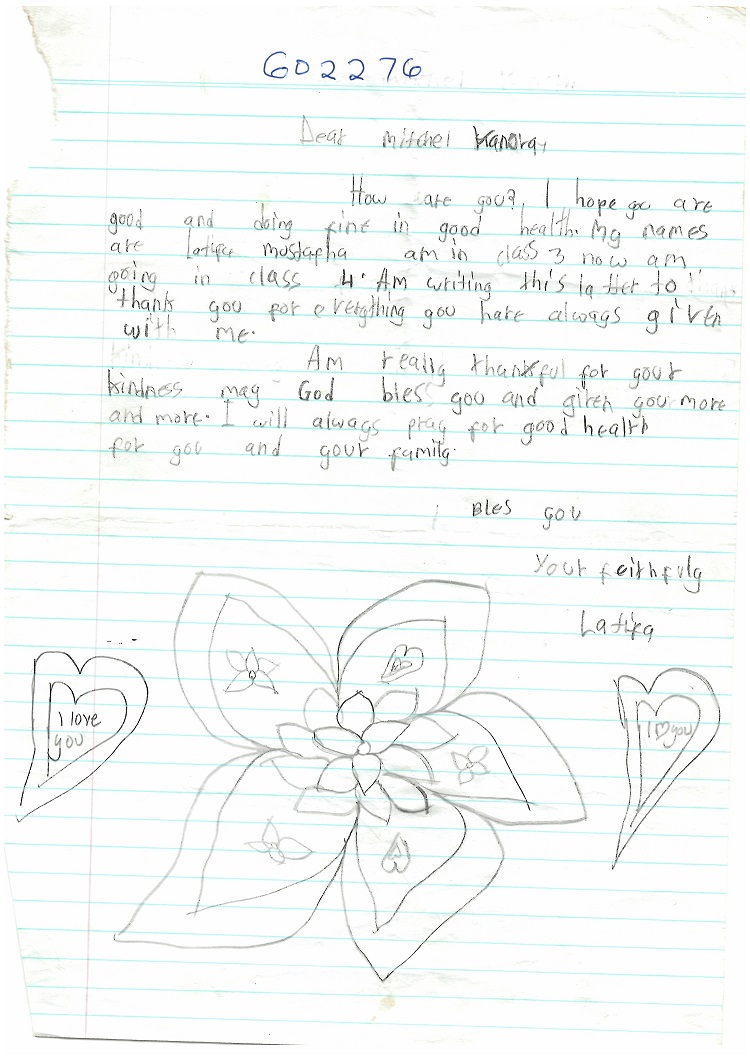 602276
Dear mitchel Kanora,
How are you? I hope yo are
good and doing fine in good health. My names
are Latifa mostapha am in class 3 now am
going in class 4. Am writing this latter to
thank you for everything you have always given
with me.
Am really thankful for your
kindness may God bless you and given you more
and more. I will always pray for good health
for you and your family.
Bles you
Your feithfuly
Latifa
I love
you
I you